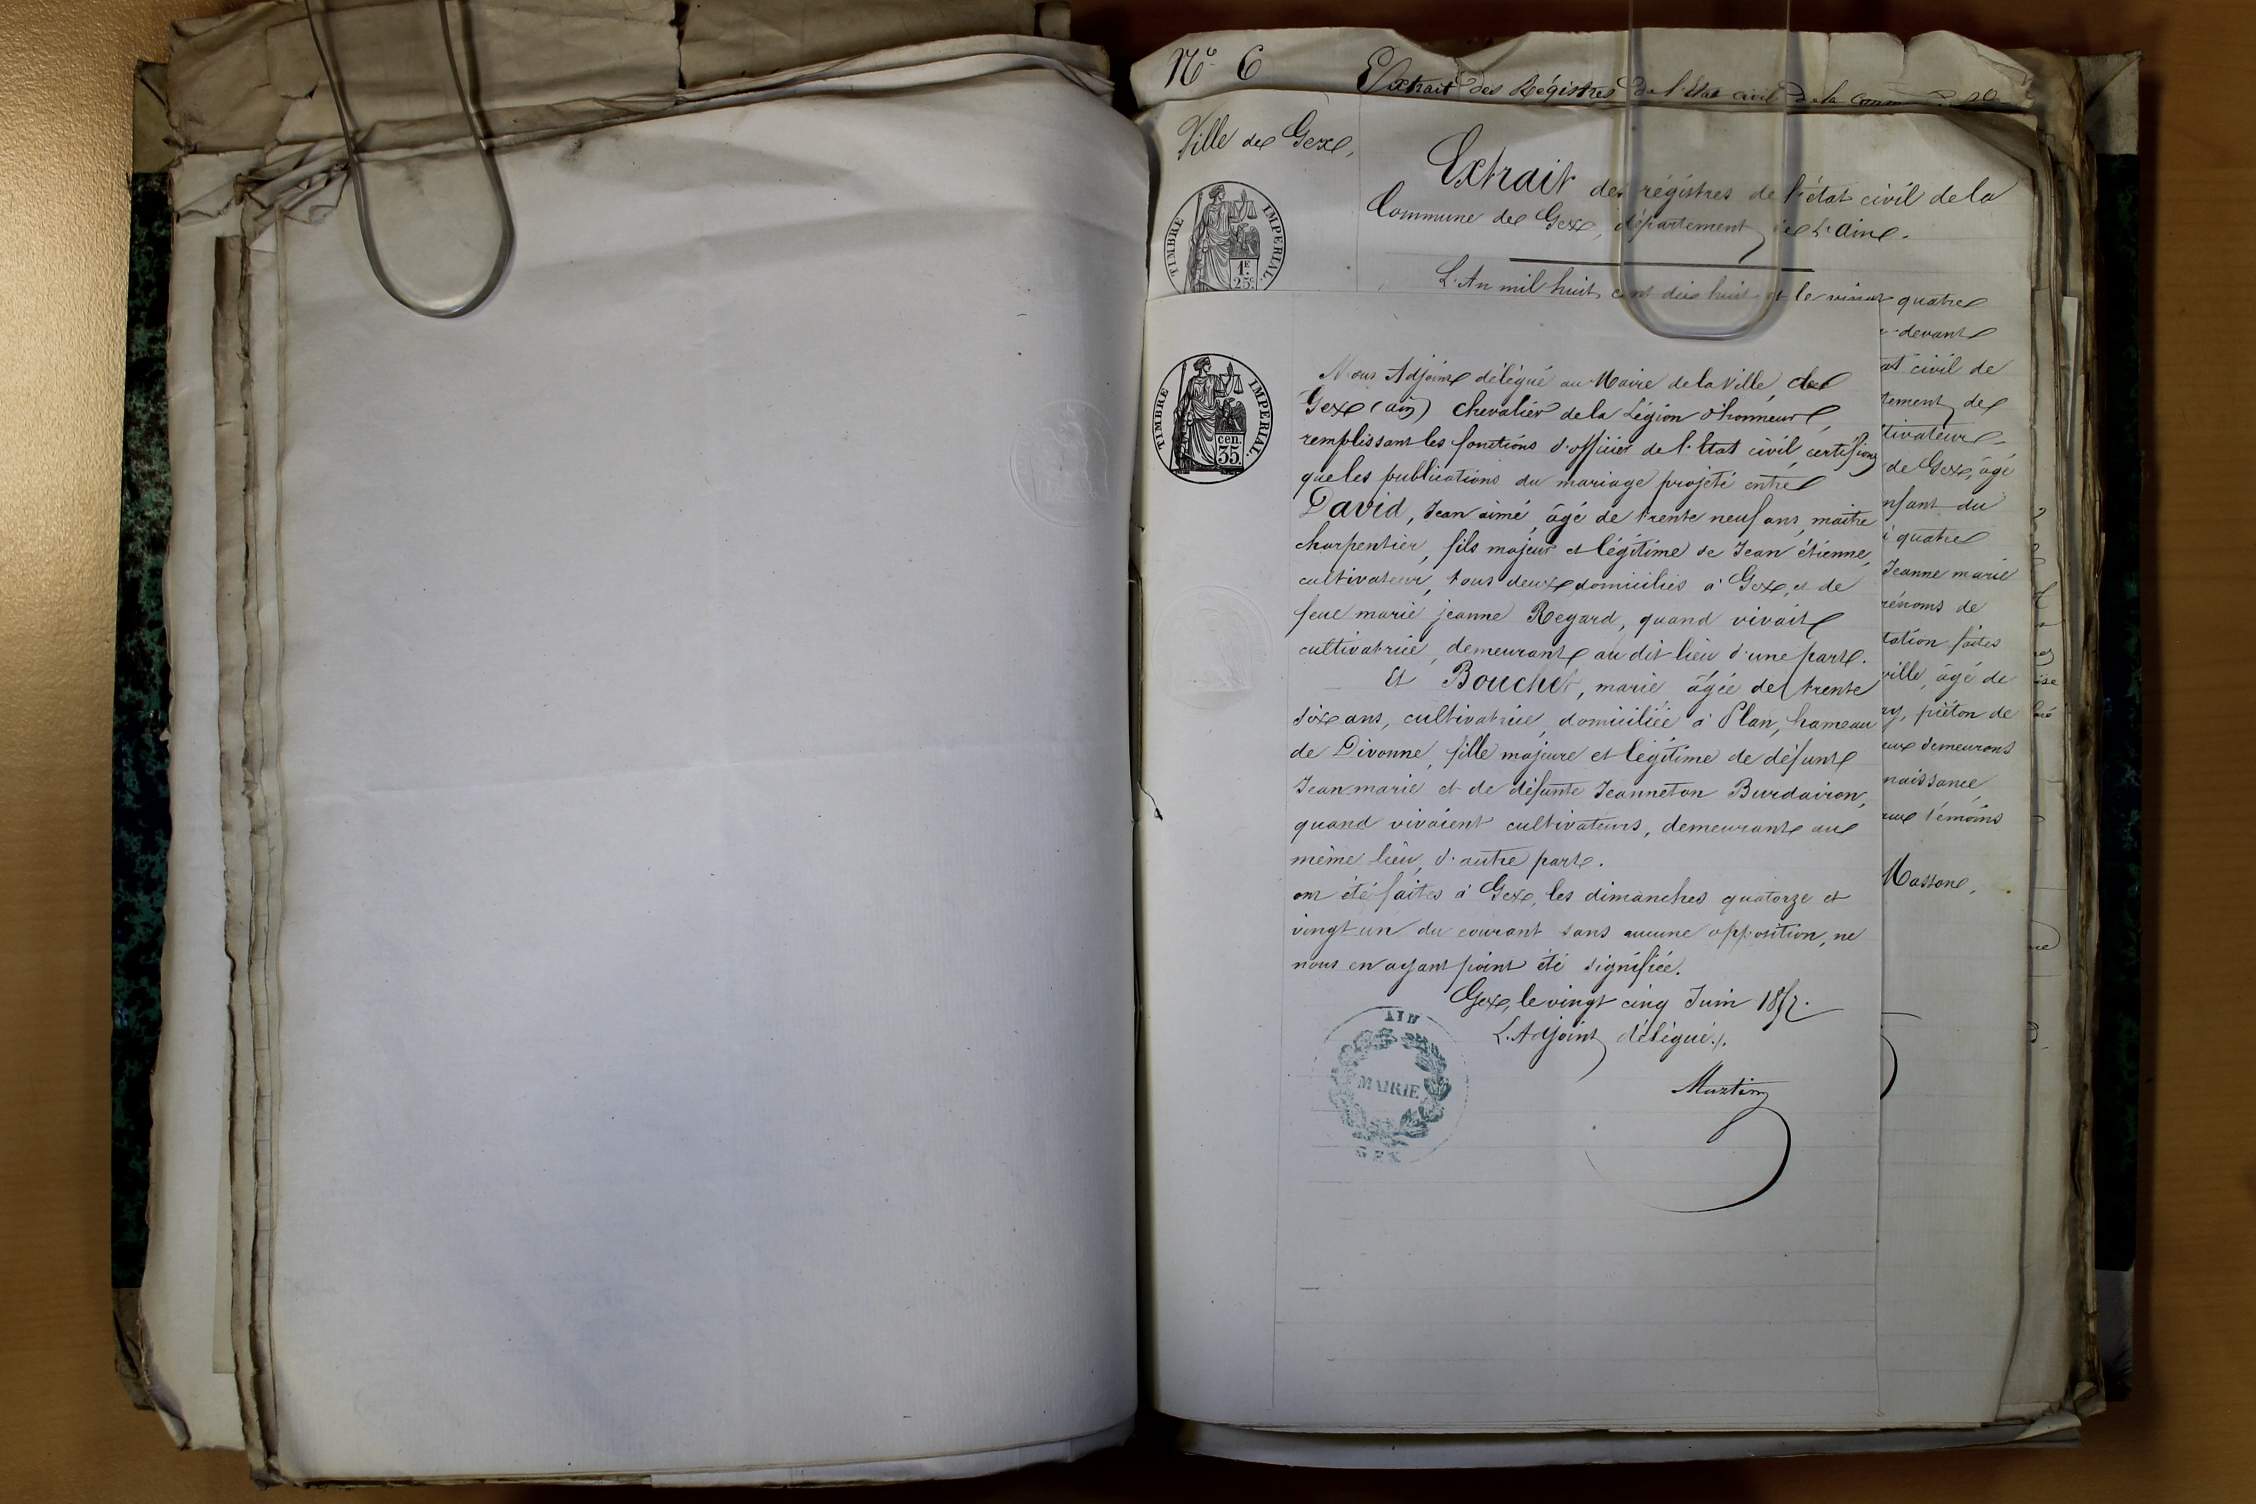 N° 6
Extrait des Régistres de l'état civil de la
Ville de Gex,
Extrait des régistres de l'état civil de la
Commune de Gex, département de l'ain.
TIMBRE IMPERIAL.
1F 25c
L'An mil huit cent dix huit et le vingt quatre
devant
at civil de
tement de
tivateur
de Gex, âgé
nfant du
quatre
Jeanne marie
rénoms de
tation faites
ville, âgé de
piéton de
eux demeurons
naissance
aux témoins
Masson,
TIMBRE IMPERIAL.
cen. 35.
Nous Adjoint délégué au Maire de la Ville de
Gex (ain) Chevalier de la Légion d'honneur,
remplissant les fonctions d'officier de l'Etat civil, certifions
que les publications du mariage projeté entre
David, Jean aimé, âgé de trente neuf ans, maître
charpentier, fils majeur et légitime de Jean étienne,
cultivateur, tous deux domiciliés à Gex, et de
feue marie jeanne Regard, quand vivait
cultivatrice, demeurant au dit lieu d'une part.
Et Bouchet, marie âgée de trente
six ans, cultivatrice, domiciliée à Plan, hameau
de Divonne, fille majeure et légitime de défunt
Jean marie et de défunte Jeanneton Burdairon,
quand vivaient cultivateurs, demeurant au
même lieu, d'autre part.
ont été faites à Gex, les dimanches quatorze et
vingt un du courant sans aucune opposition, ne
nous en ayant point été signifiée.
Gex, le vingt cinq Juin 1857.
L'Adjoint délégué.
Martin
AIN
MAIRIE
GEX